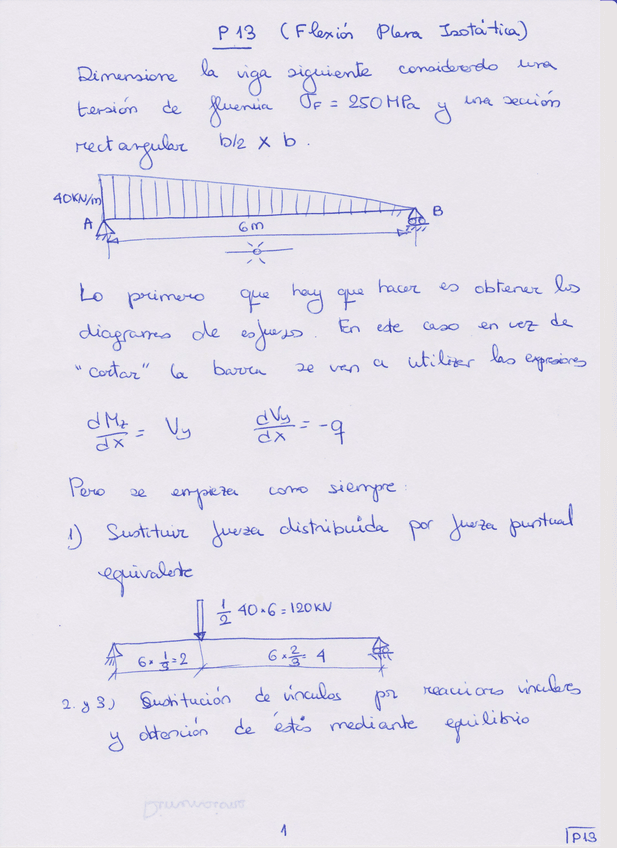 P13 (Flexión Plana Isotática)
Dimensione la viga siguiente considerando una
tensión de fluencia σF = 250 MPa y una sección
rectangular b/2 x b.
40KN/m
A
B
6m
Lo primero que hay que hacer es obtener los
diagramas de esfuerzo. En este caso en vez de
"cortar" la barra se van a utilizar las expresiones
dMz/dx = Vy dVy/dx = -q
Pero se empieza como siempre:
1) Sustituir fuerza distribuida por fuerza puntual
equivalente
1/2 40*6 = 120KN
6*1/3=2 6*2/3= 4
2. y 3.) Sustitución de vínculos por reacciones vinculares
y obtención de éstas mediante equilibrio
1
P13